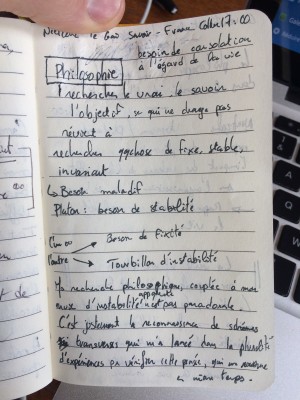 Nietzsche le Gai Savoir - France Culture 17:00
besoin de consolation
à l'égard de la vie
Philosophie
rechercher le vrai, le savoir
l'objectif, ce qui ne change pas
revient à
rechercher qqchose de fixe, stable,
invariant
↳ Besoin maladif
Platon : besoin de stabilité
L'un ou → Besoin de fixité
l'autre → Tourbillon d'instabilité
Ma recherche philosophique, couplée à mon
apparente
d'instabilité n'est pas paradoxale.
C'est justement la reconnaissance de schémas
transverses qui m'a lancé dans la pluralité
d'expériences pr vérifier cette pensée, qui
en même temps.